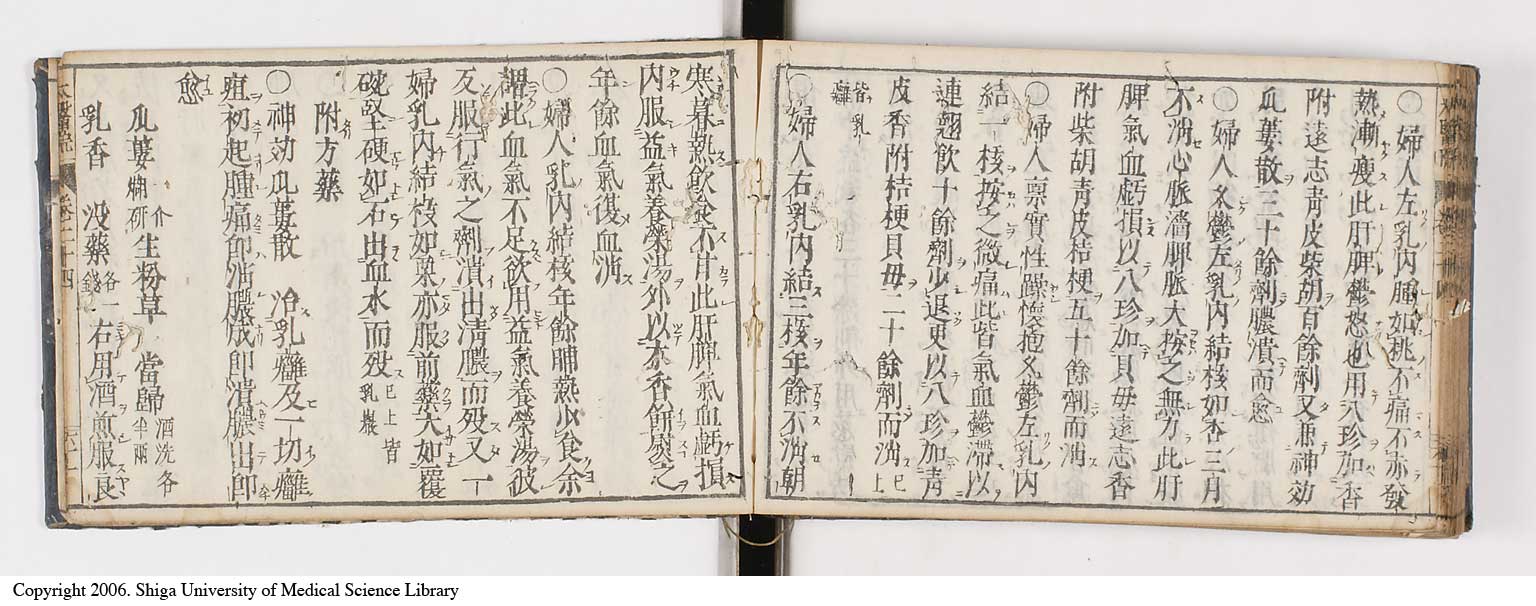 ○婦人左乳內腫如桃不痛不赤發
熱漸瘦此肝脾鬱怒也用八珍加香
附遠志青皮柴胡百餘劑又兼神効
瓜蔞散三十餘劑膿潰而愈
○婦人久鬱左乳內結核如杏三月
不消心脈濇脾脈大按之無力此肝
脾氣血虧損以八珍加貝母遠志香
附柴胡青皮桔梗五十餘劑而消
○婦人禀實性躁懷抱久鬱左乳內
結一核按之微痛此皆氣血鬱滯以
連翹飲十餘劑少退更以八珍加青
皮香附桔梗貝母二十餘劑而消已上
皆乳癰
○婦人右乳內結三核年餘不消朝
寒暮熱飲食不甘此肝脾氣血虧損
內服益氣養榮湯外以木香餅熨之
年餘血氣復血消
○婦人乳內結核年餘晡熱少食余
謂此血氣不足欲用益氣養榮湯彼
反服行氣之劑潰出清膿而歿又一
婦乳內結核如栗亦服前藥大如覆
碗堅硬如石出血水而歿已上皆乳巖
附方藥
○神効瓜蔞散 治乳癰及一切癰
疽初起腫痛卽消膿成卽潰膿出卽
愈
瓜蔞爛研一介 生粉草 當歸酒洗各半兩
乳香 沒藥各一錢 右用酒煎服良
卷二十四
Copyright 2006. Shiga University of Medical Science Library